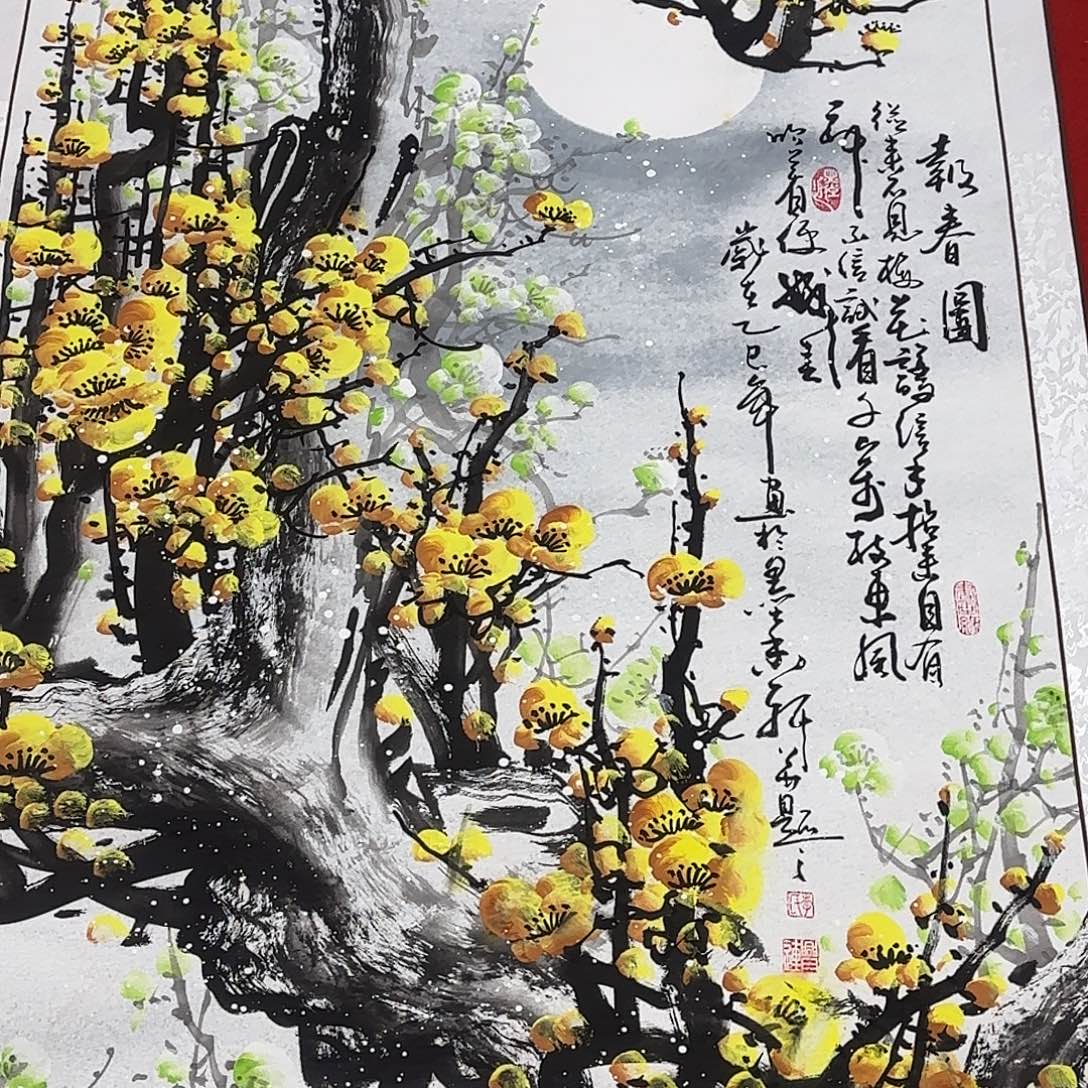 報春圖
從來不見梅花譜信手拈來自有
神不信試看千萬枝東風
吹着便成春
歲在乙巳年畫於墨香軒並題之